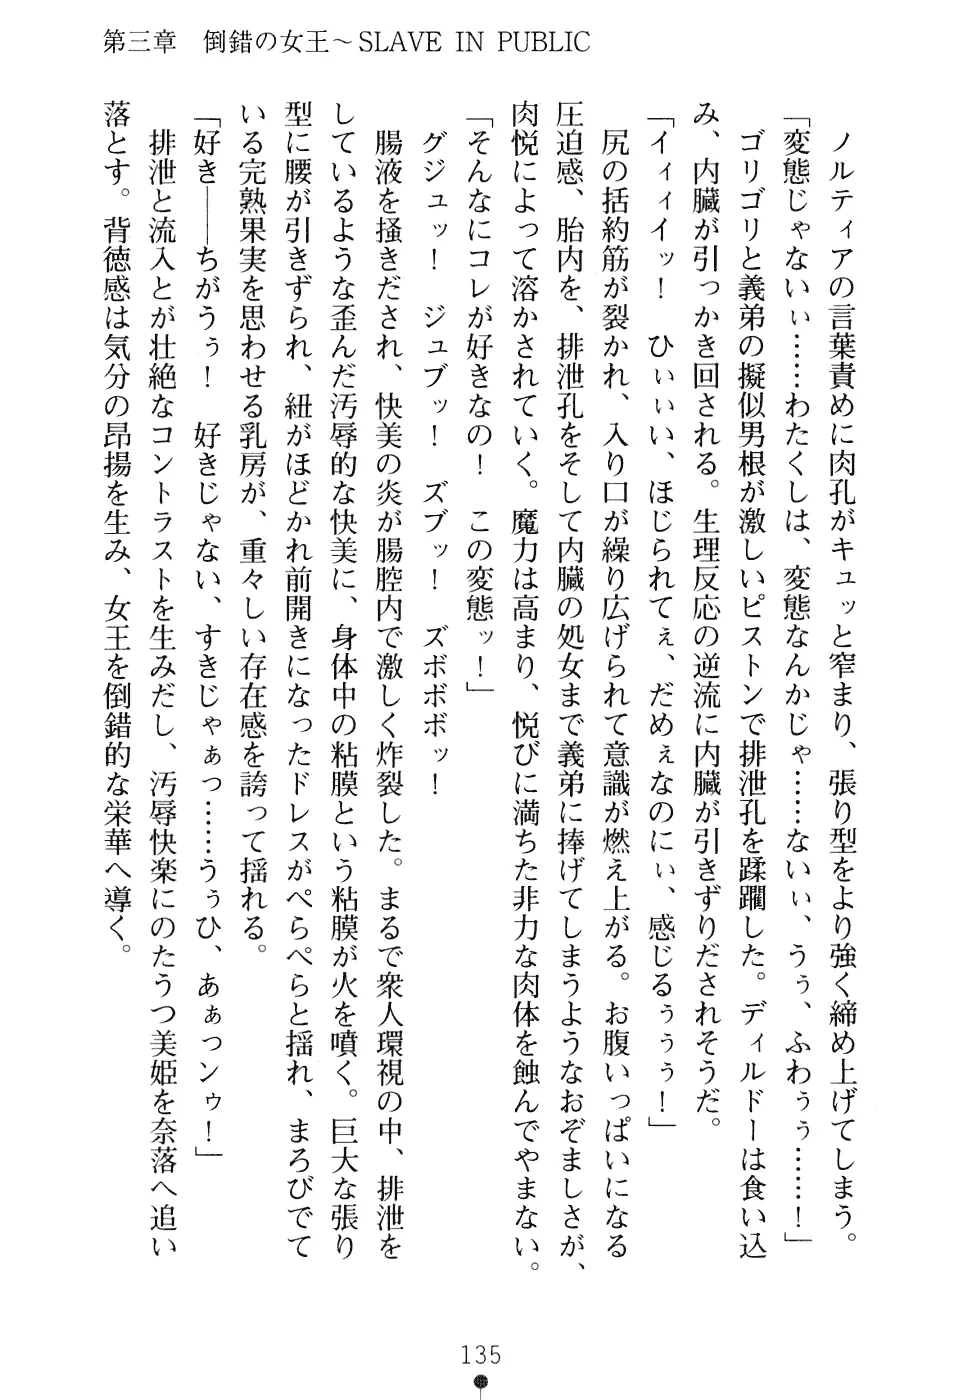 第三章　倒錯の女王～SLAVE IN PUBLIC
　ノルティアの言葉責めに肉孔がキュッと窄まり、張り型をより強く締め上げてしまう。
「変態じゃないぃ……わたくしは、変態なんかじゃ……ないぃ、うぅ、ふわぅぅ……！」
　ゴリゴリと義弟の擬似男根が激しいピストンで排泄孔を蹂躙した。ディルドーは食い込
み、内臓が引っかき回される。生理反応の逆流に内臓が引きずりだされそうだ。
「イィィイッ！　ひぃぃい、ほじられてぇ、だめぇなのにぃ、感じるぅぅぅ！」
　尻の括約筋が裂かれ、入り口が繰り広げられて意識が燃え上がる。お腹いっぱいになる
圧迫感、胎内を、排泄孔をそして内臓の処女まで義弟に捧げてしまうようなおぞましさが、
肉悦によって溶かされていく。魔力は高まり、悦びに満ちた非力な肉体を蝕んでやまない。
「そんなにコレが好きなの！　この変態ッ！」
　グジュッ！　ジュブッ！　ズブッ！　ズボボボッ！
　腸液を掻きだされ、快美の炎が腸腔内で激しく炸裂した。まるで衆人環視の中、排泄を
しているような歪んだ汚辱的な快美に、身体中の粘膜という粘膜が火を噴く。巨大な張り
型に腰が引きずられ、紐がほどかれ前開きになったドレスがぺらぺらと揺れ、まろびでて
いる完熟果実を思わせる乳房が、重々しい存在感を誇って揺れる。
「好き――ちがうぅ！　好きじゃない、すきじゃぁっ……うぅひ、あぁっンゥ！」
　排泄と流入とが壮絶なコントラストを生みだし、汚辱快楽にのたうつ美姫を奈落へ追い
落とす。背徳感は気分の昂揚を生み、女王を倒錯的な栄華へ導く。
135